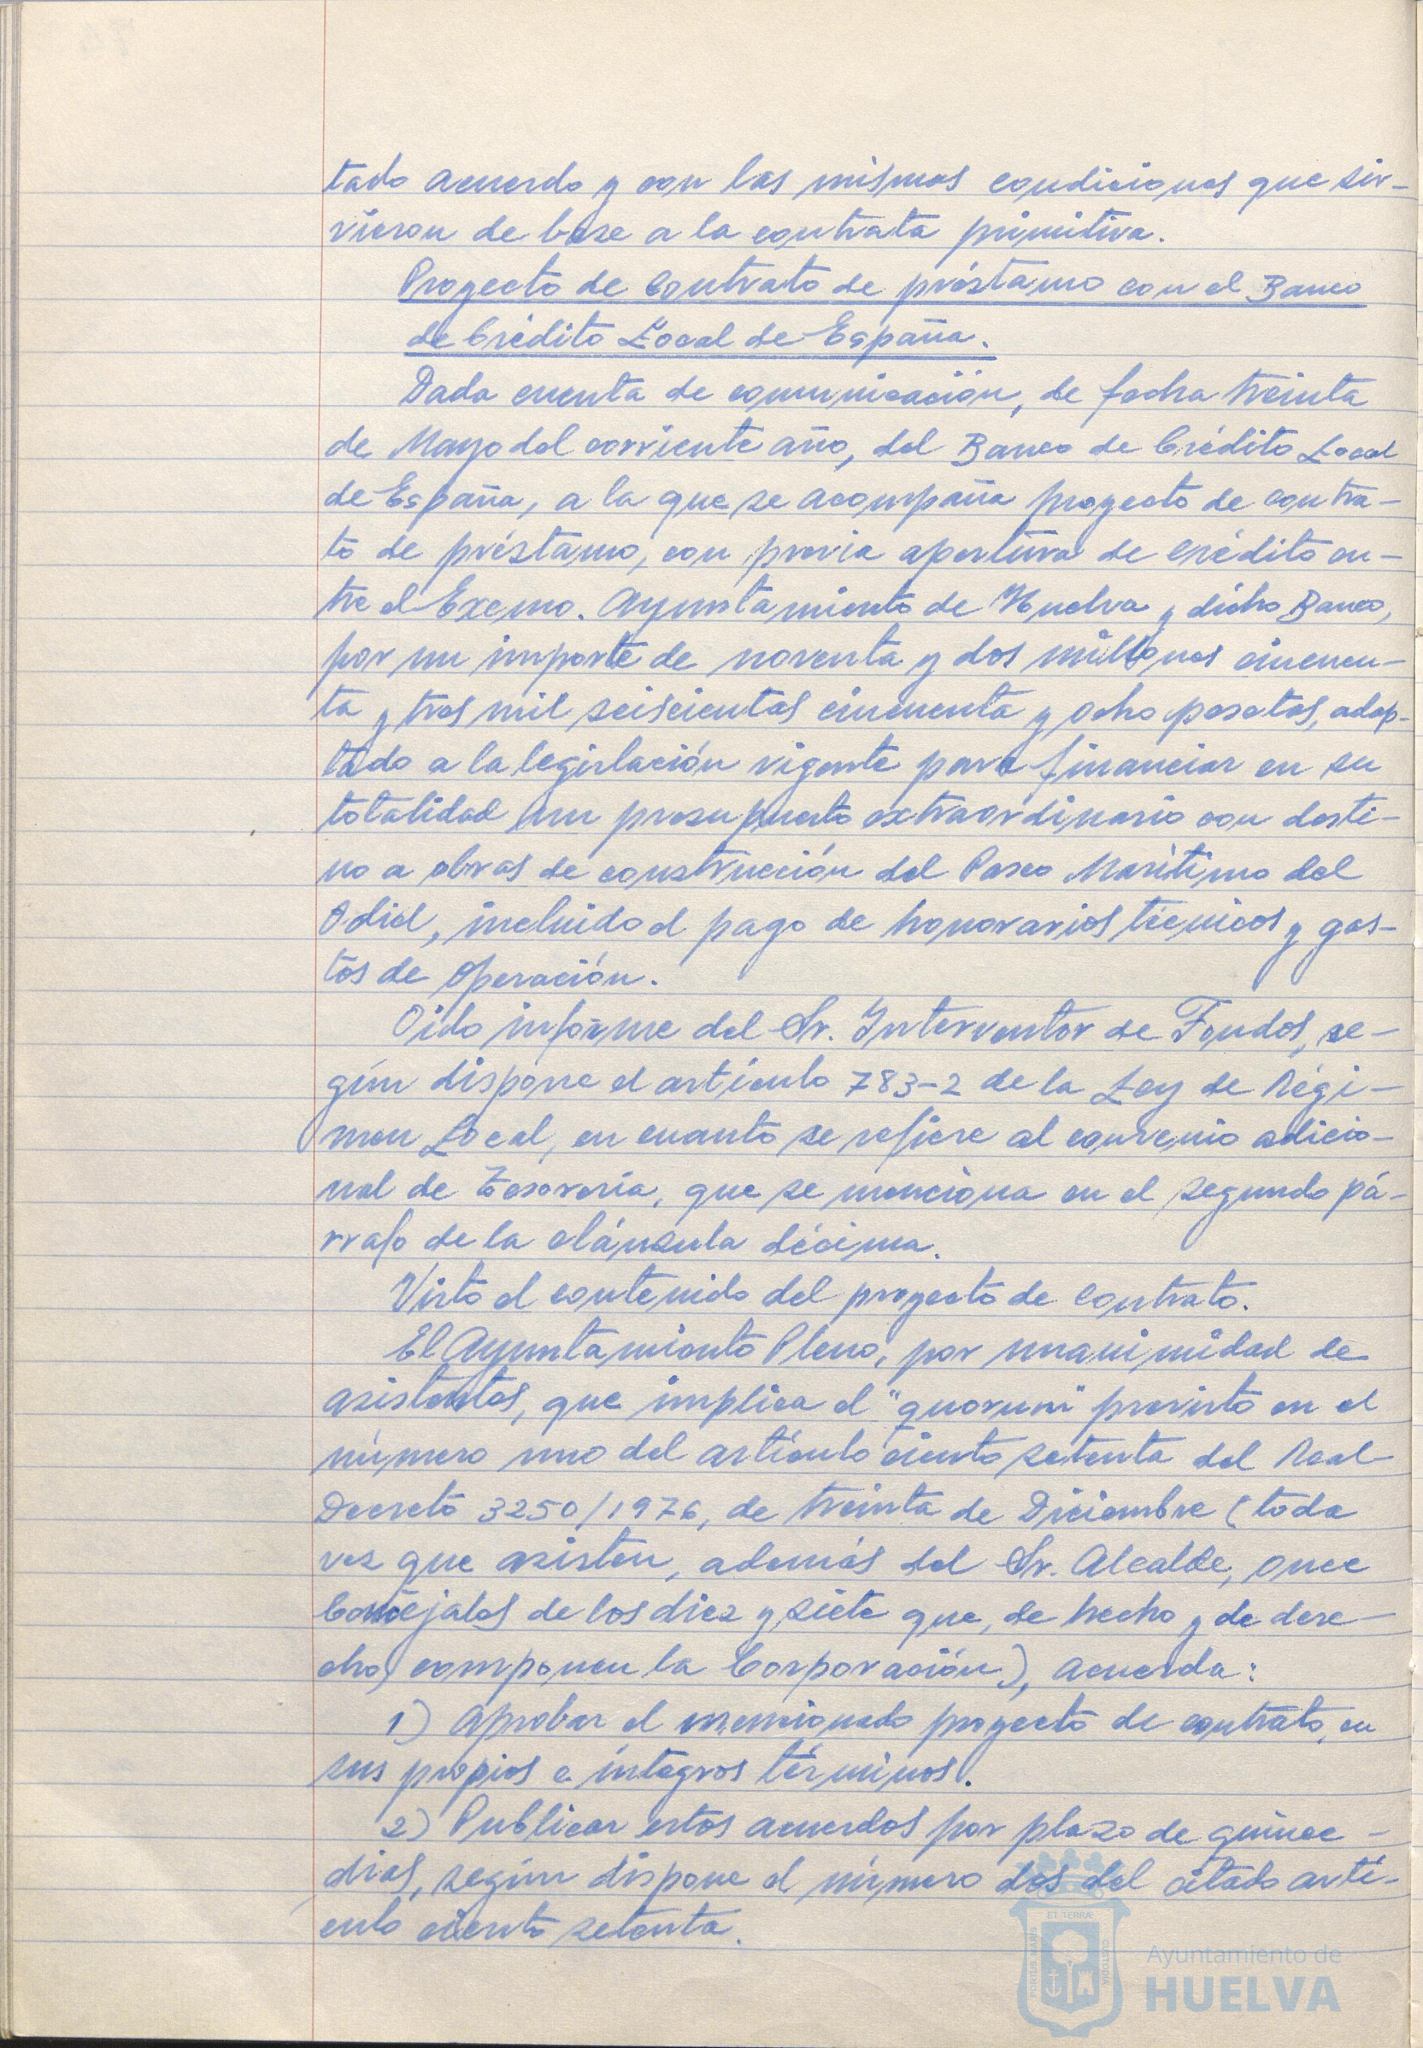 tado acuerdo y con las mismas condiciones que sir-
vieron de base a la contrata primitiva.
Proyecto de Contrato de préstamo con el Banco
de Crédito Local de España.
Dada cuenta de comunicación, de fecha treinta
de Mayo del corriente año, del Banco de Crédito Local
de España, a la que se acompaña proyecto de contra-
to de préstamo, con previa apertura de crédito en-
tre el Excmo. Ayuntamiento de Huelva y dicho Banco,
por un importe de noventa y dos millones cincuen-
ta y tres mil seiscientas cincuenta y ocho pesetas, adap-
tado a la legislación vigente para financiar en su
totalidad un presupuesto extraordinario con desti-
no a obras de construcción del Paseo Marítimo del
Odiel, incluido el pago de honorarios técnicos y gas-
tos de operación.
Oido informe del Sr. Interventor de Fondos, se-
gún dispone el artículo 783-2 de la Ley de Régi-
men Local, en cuanto se refiere al convenio adicio-
nal de Tesorería, que se menciona en el segundo pá-
rrafo de la cláusula décima.
Visto el contenido del proyecto de contrato.
El Ayuntamiento Pleno, por unanimidad de
asistentes, que implica el "quorum" previsto en el
número uno del artículo ciento setenta del Real
Decreto 3250/1976, de treinta de Diciembre (toda
vez que asisten, además del Sr. Alcalde, once
Concejales de los diez y siete que, de hecho y de dere-
cho, componen la Corporación), acuerda:
1) Aprobar el mencionado proyecto de contrato, en
sus propios e íntegros términos.
2) Publicar estos acuerdos por plazo de quince
dias, según dispone el número dos del citado artí-
culo ciento setenta.
PORTUS MARIS
ET TERRÆ
CUSTODIA
Ayuntamiento de
HUELVA